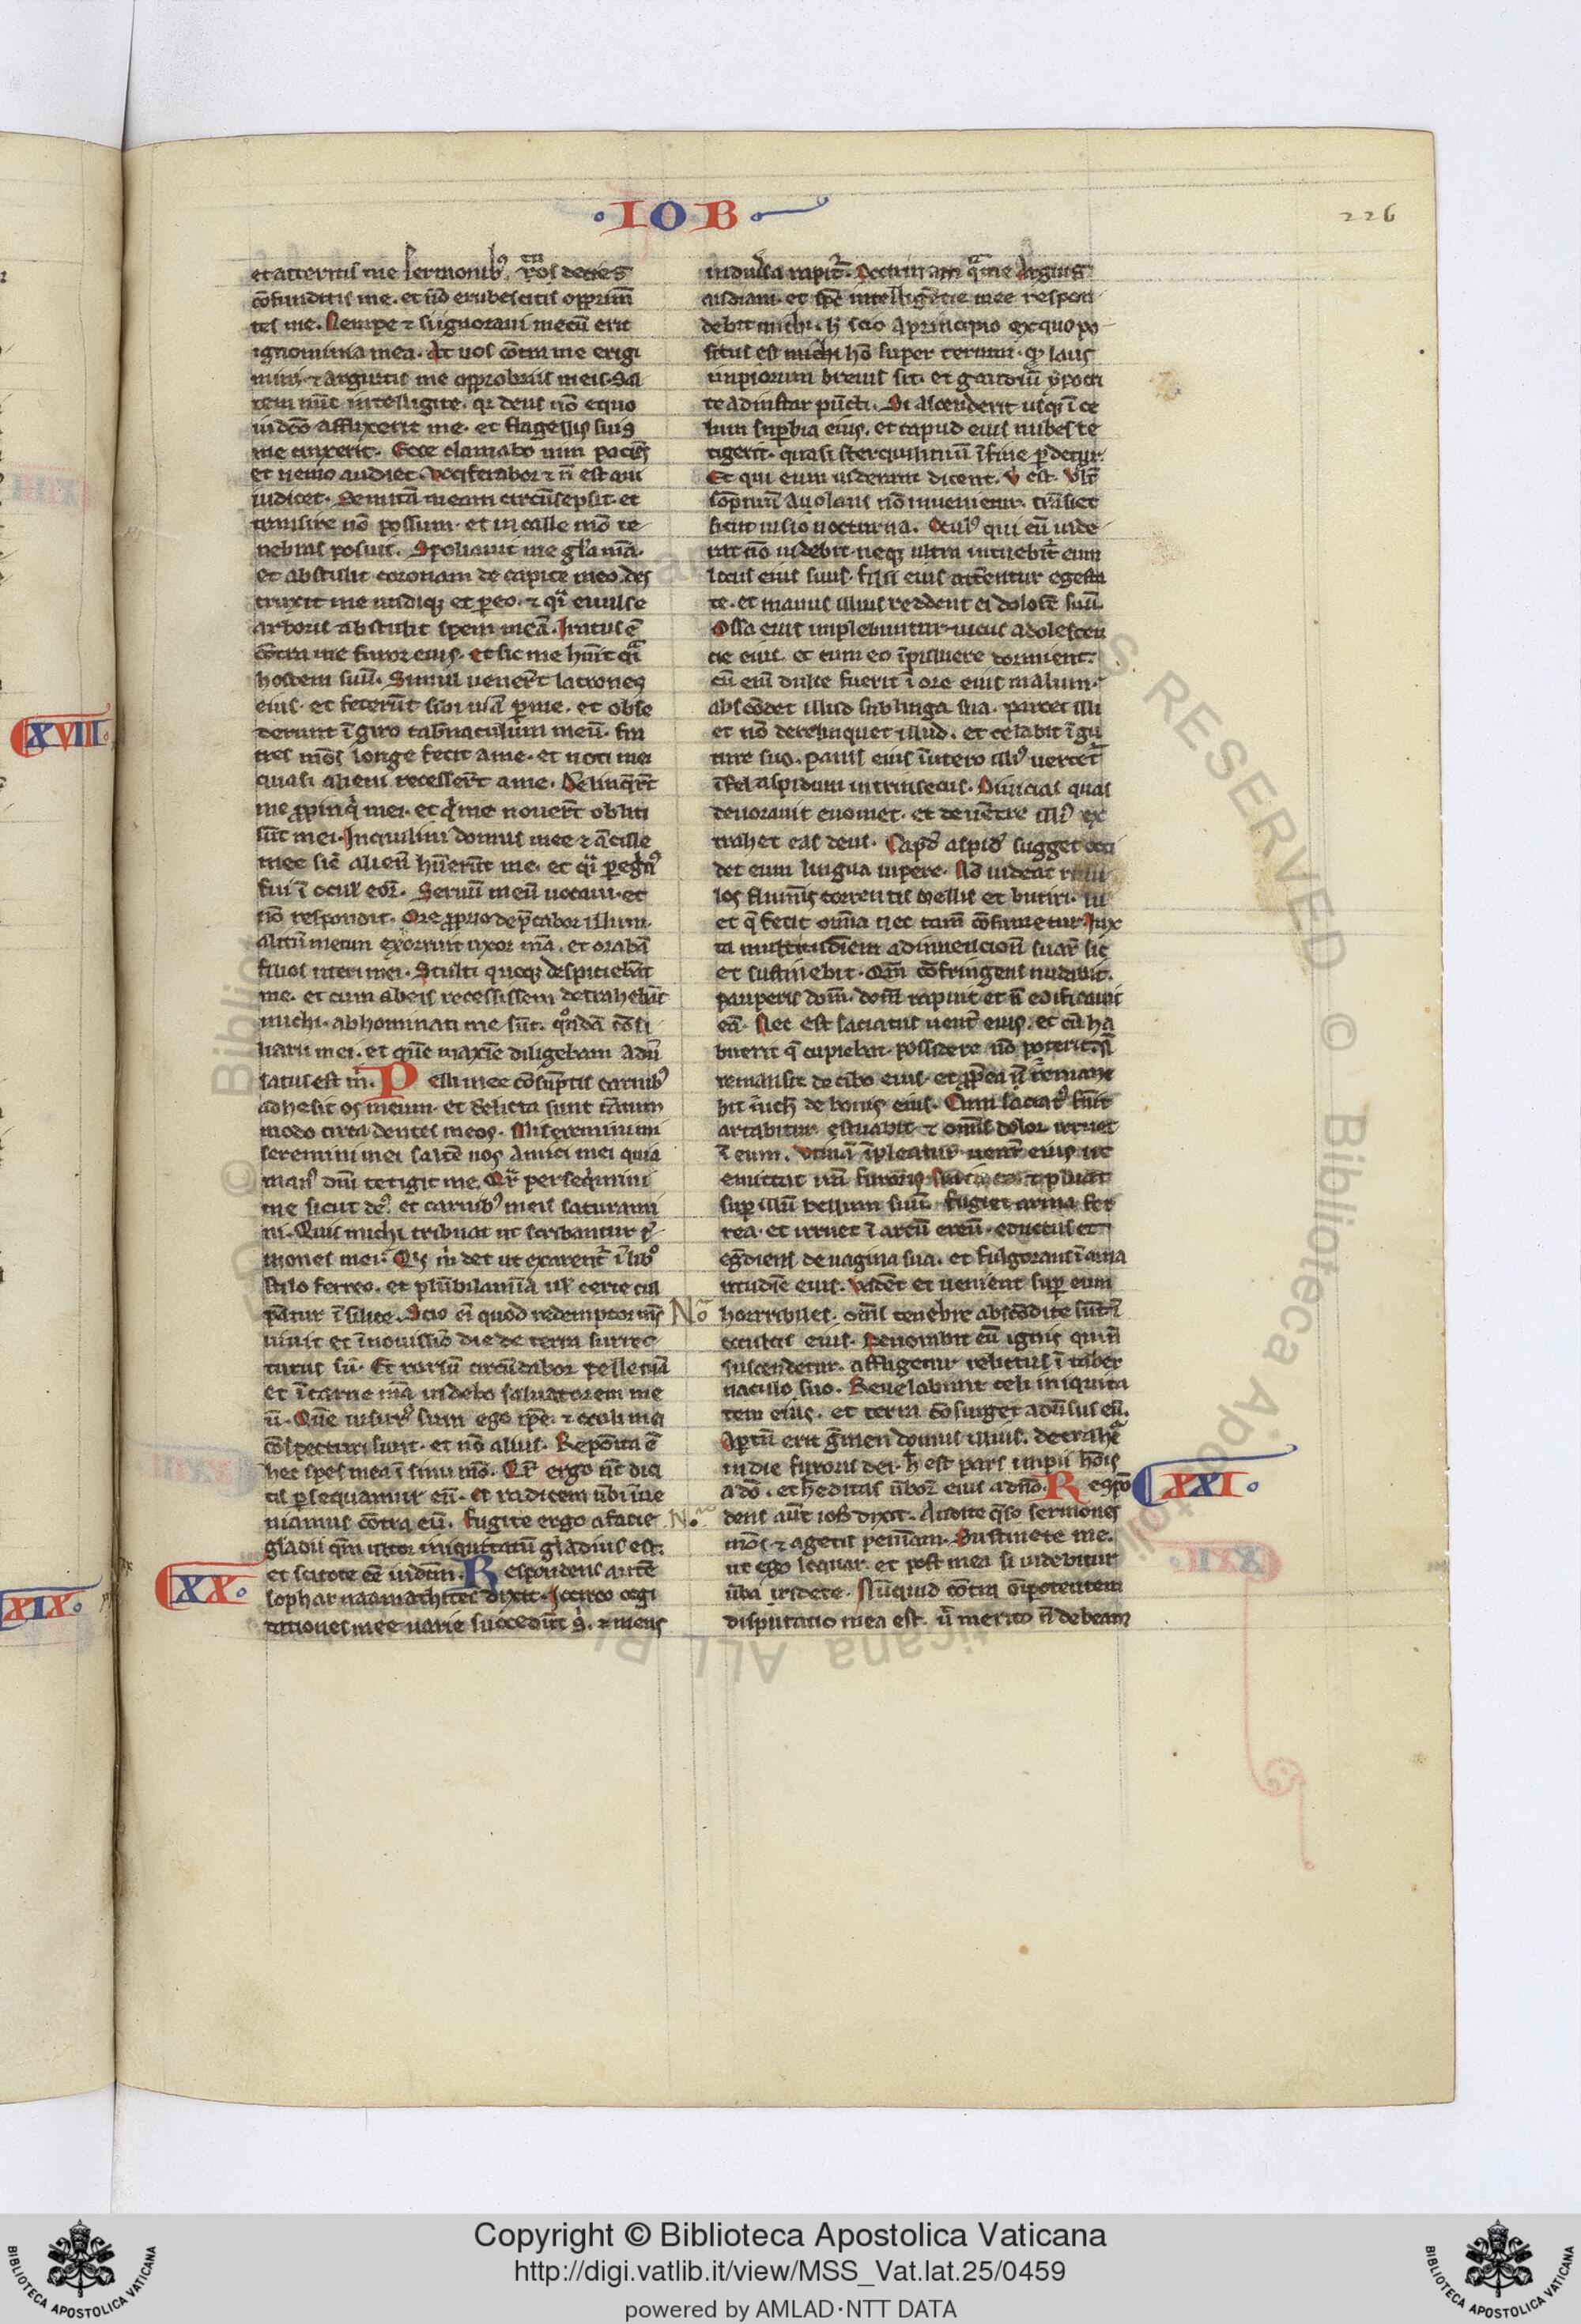 ·IOB·
226
et atteritis me sermonibꝰ. en vos decies
cōfunditis me. et nō erubescitis opprim̄
tes me. Nempe ⁊ si ignoraui mecū erit
ignominia mea. At uos cōtra me erigi
mini. ⁊ arguitis me opprobriis meis. Sal
tem nūc intelligite. qꝛ deus nō equo
iudicō afflixerit me. et flagellis suis
me cinxerit. Ecce clamabo uim paciēs
et nemo audiet. vociferabor ⁊ n̄ est qui
iudicet. Semitā meam circūsepsit. et
transire nō possum. et in calle meō te
nebras posuit. Spoliauit me gl̄a mā.
et abstulit coronam de capite meo. des
truxit me undiqꝫ et ꝑeo. ⁊ qͣi euulse
arboris abstulit spem meā. Iratus ē
cōtra me furor eius. et sic me hūit qͣi
hostem suū. Simul uener̄t latrones
eius. et fecerūt sibi uiā ꝑ me. et obse
derunt ī giro tab̄naculum meū. fra
tres meōs longe fecit a me. et noti mei
quasi alieni recesser̄t a me. Derelinq̄r̄t
me ꝓpinq̇ mei. et q̇ me nouer̄t obliti
sūt mei. Inquilini domus mee ⁊ ācille
mee sic̄ alienū hūerūt me. et qͣi ꝑegͥnꝰ
fui ī ocul̄ eoꝝ. Seruū meū uocaui. et
nō respondit. Ore ꝓprio dep̄cabor illum.
alitū meum exorruit uxor mā. et orabā
filios uteri mei. Stulti quoqꝫ despiciebāt
me. et cum ab eis recessissem detrahebāt
michi. abhominati me sūt. qͦndā cōsi
liarii mei. et quē maxīe diligebam adūs
satus est m̄. Pelli mee cōsūptis carnibꝰ
adhesit os meum. et dēlicta sunt tātum
modo circa dentes meos. Miseremini mi
seremini mei saltē uos amici mei quia
manꝰ dn̄i tetigit me. Qͣr persequimini
me sicut deꝰ. et carnibꝰ meis saturami
ni. Quis michi tribuat ut scribantur ẜ
mones mei. Qͥs m̄ det ut exarent̄ ī libͦ
stilo ferreo. et plūbi lamīa ul̄ certe cul
pātur ī silice. Scio ēī quod redemptor ms̄
uiuit et ī nouissīo die de terra surrec
turus sū. Et rursū circūdabor pelle mā
et ī carne mā uidebo saluatorem me
ū. Quē uisurꝰ sum ego ip̄e. ⁊ oculi mei
cōspecturi sunt. et nō alius. Reposita ē
hec spes mea ī sinu meō. Qͣr ergo nc̄ dici
tis ꝑsequamur eū. et radicem ūbi īue
niamus cōtra eū. fugite ergo a facie
gladii qm̄ ultor iniquitatū gladius est.
et scitote eē iudicīm. Respondens autē
sophar naamathites dixit. Iccirco cogi
tationes mee uarie succedūt ẜ. ⁊ mens
XX
in diuersa rapit̄. Doctrinam qͣ me arguis
audiam. et sp̄c intelligētie mee respon
debit michi. h̄ scio a principio ex quo po
situs est michi hō super terram. qꝫ laus
impiorum breuis sit. et gaudiū ypocri
te ad instar pūcti. Si ascenderit usqꝫ ī ce
lum suꝑbia eius. et capud eius nubes te
tigerit. quasi sterquiliniū ī fine ꝑdetur.
Et qui eum uiderant dicent. v̇ est. velt
sōpnium auolans nō inuenietur. trāsiet
sicut uisio nocturna. Oculꝰ qui eū uide
rat nō uidebit. neqꝫ ultra intuebit̄ eum
locus eius suus. filii eius atterentur egesta
te. et manus illius reddent ei dolorē suū.
Ossa eius implebuntur uiciis adolescen
cie eius. et cum eo ī puluere dormient.
cū enī dulce fuerit ī ore eius malum.
abscōdet illud sub lingua sua. parcet illi
et nō derelinquet illud. et celabit ī gu
ture suo. panis eius ī utero illiꝰ uertet̄
ī fel aspidum intrinsecus. Diuicias quas
deuorauit euomet. et de uētre illiꝰ ex
trahet eas deus. Capd̄ aspidū sugget occi
det eum lingua uipere. Nō uideat riuu
los fluminis torrentis mellis et butiri. lu
et q̄ fecit omīa nec tam̄ cōsumetur. Iux
ta multitudīem adinuencionū suaꝝ sic
et sustinebit. Qm̄ cōfringens nudauit
pauperis domū. domū rapuit et n̄ edificauit
eā. Nec est saciatus uent̄ eius. et cū ha
buerit q̄ cupiebat. possidere nō poterit. n̄
remansit de cibo eius. et ꝓpt̄ea n̄ remane
bit nich̄ de bonis eius. Cum saciatꝰ fūit
artabitur estuabit ⁊ omīs dolor irruet
ī eum. Vtinā īpleatur uent̄ eius ut
emittat
sup illū bellum suū. fugiet arma fer
rea. et irruet ī arcū ereū. eductus et
eḡdiens de uagina sua. et fulgorans ī ama
ritudīe eius. Vadēt et uenient suꝑ eum
horribiles. omīs tenebre abscōdite sūt ī
occultis eius. Deuorabit eū ignis qui n̄
succendetur. affligetur relictus ī taber
naculo suo. Reuelabunt celi iniquita
tem eius. et terra cōsurget aduersus eū.
Aꝑtū erit germen domus illius. detrahet̄
in die furoris dei. h̄ est pars impii hoīs
a dō. et hēditas ūboꝝ eius a dn̄o. Respō
dens aut̄ iob dixit. Audite q̄so sermones
meōs. ⁊ agetis peniām. Sustinete me.
ut ego loquar. et post mea si uidebitur
ūba ridete. Nūquid cōtra oīpotentem
disputatio mea est. ut merito n̄ debeam
XXI
XVIII
XIX
Nͦ
N.
Copyright © Biblioteca Apostolica Vaticana
http://digi.vatlib.it/view/MSS_Vat.lat.25/0459
powered by AMLAD·NTT DATA
BIBLIOTECA APOSTOLICA VATICANA
BIBLIOTECA APOSTOLICA VATICANA